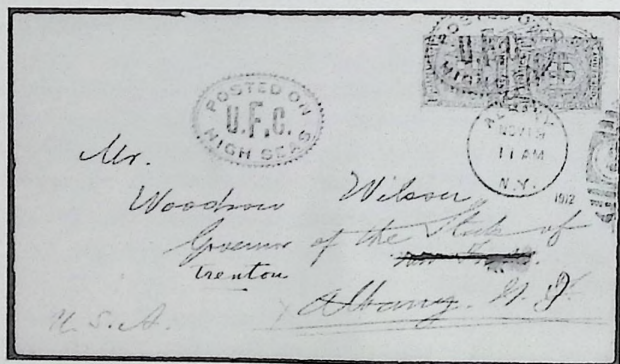 POSTED ON
U.F.C.
HIGH SEAS
POSTED ON
U.F.C.
HIGH
ALBANY
NOV 19
11 AM
N.Y.
1912
Mr.
Woodrow Wilson
Governor of the State of
Trenton
Albany. N. J.
U. S. A.